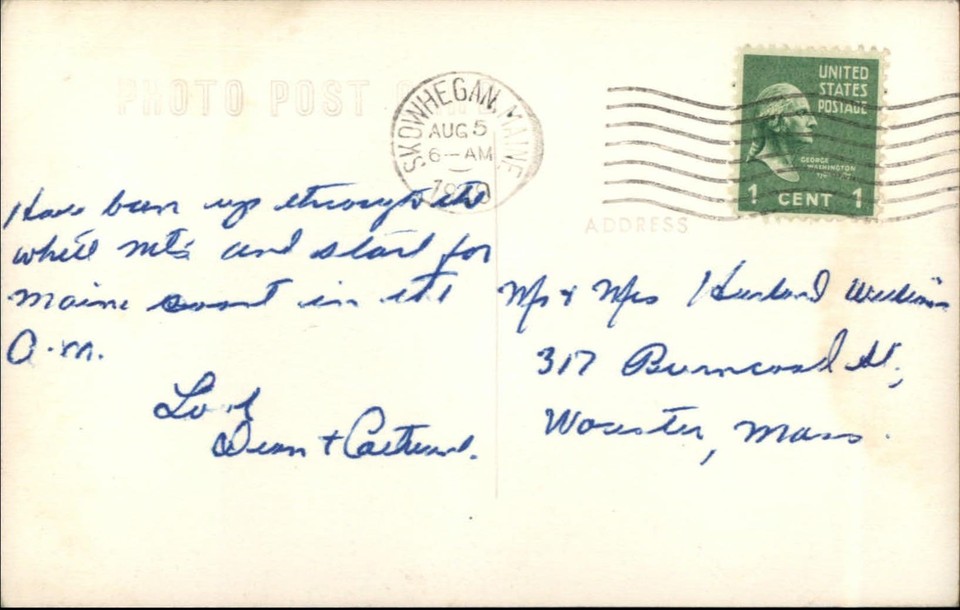 PHOTO POST CARD
SKOWHEGAN, MAINE
AUG 5
6—AM
UNITED
STATES
POSTAGE
GEORGE
WASHINGTON
1 CENT 1
ADDRESS
Have been up through the
white Mts and start for
Maine coast in the
A.M.
Love
Dean +
Mr & Mrs Harland
317 Burncoat St.,
Worcester, Mass.